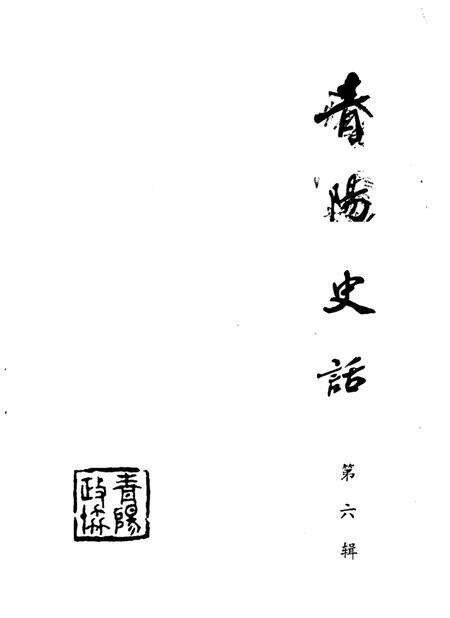 青陽史話
第六辑
青陽
政協